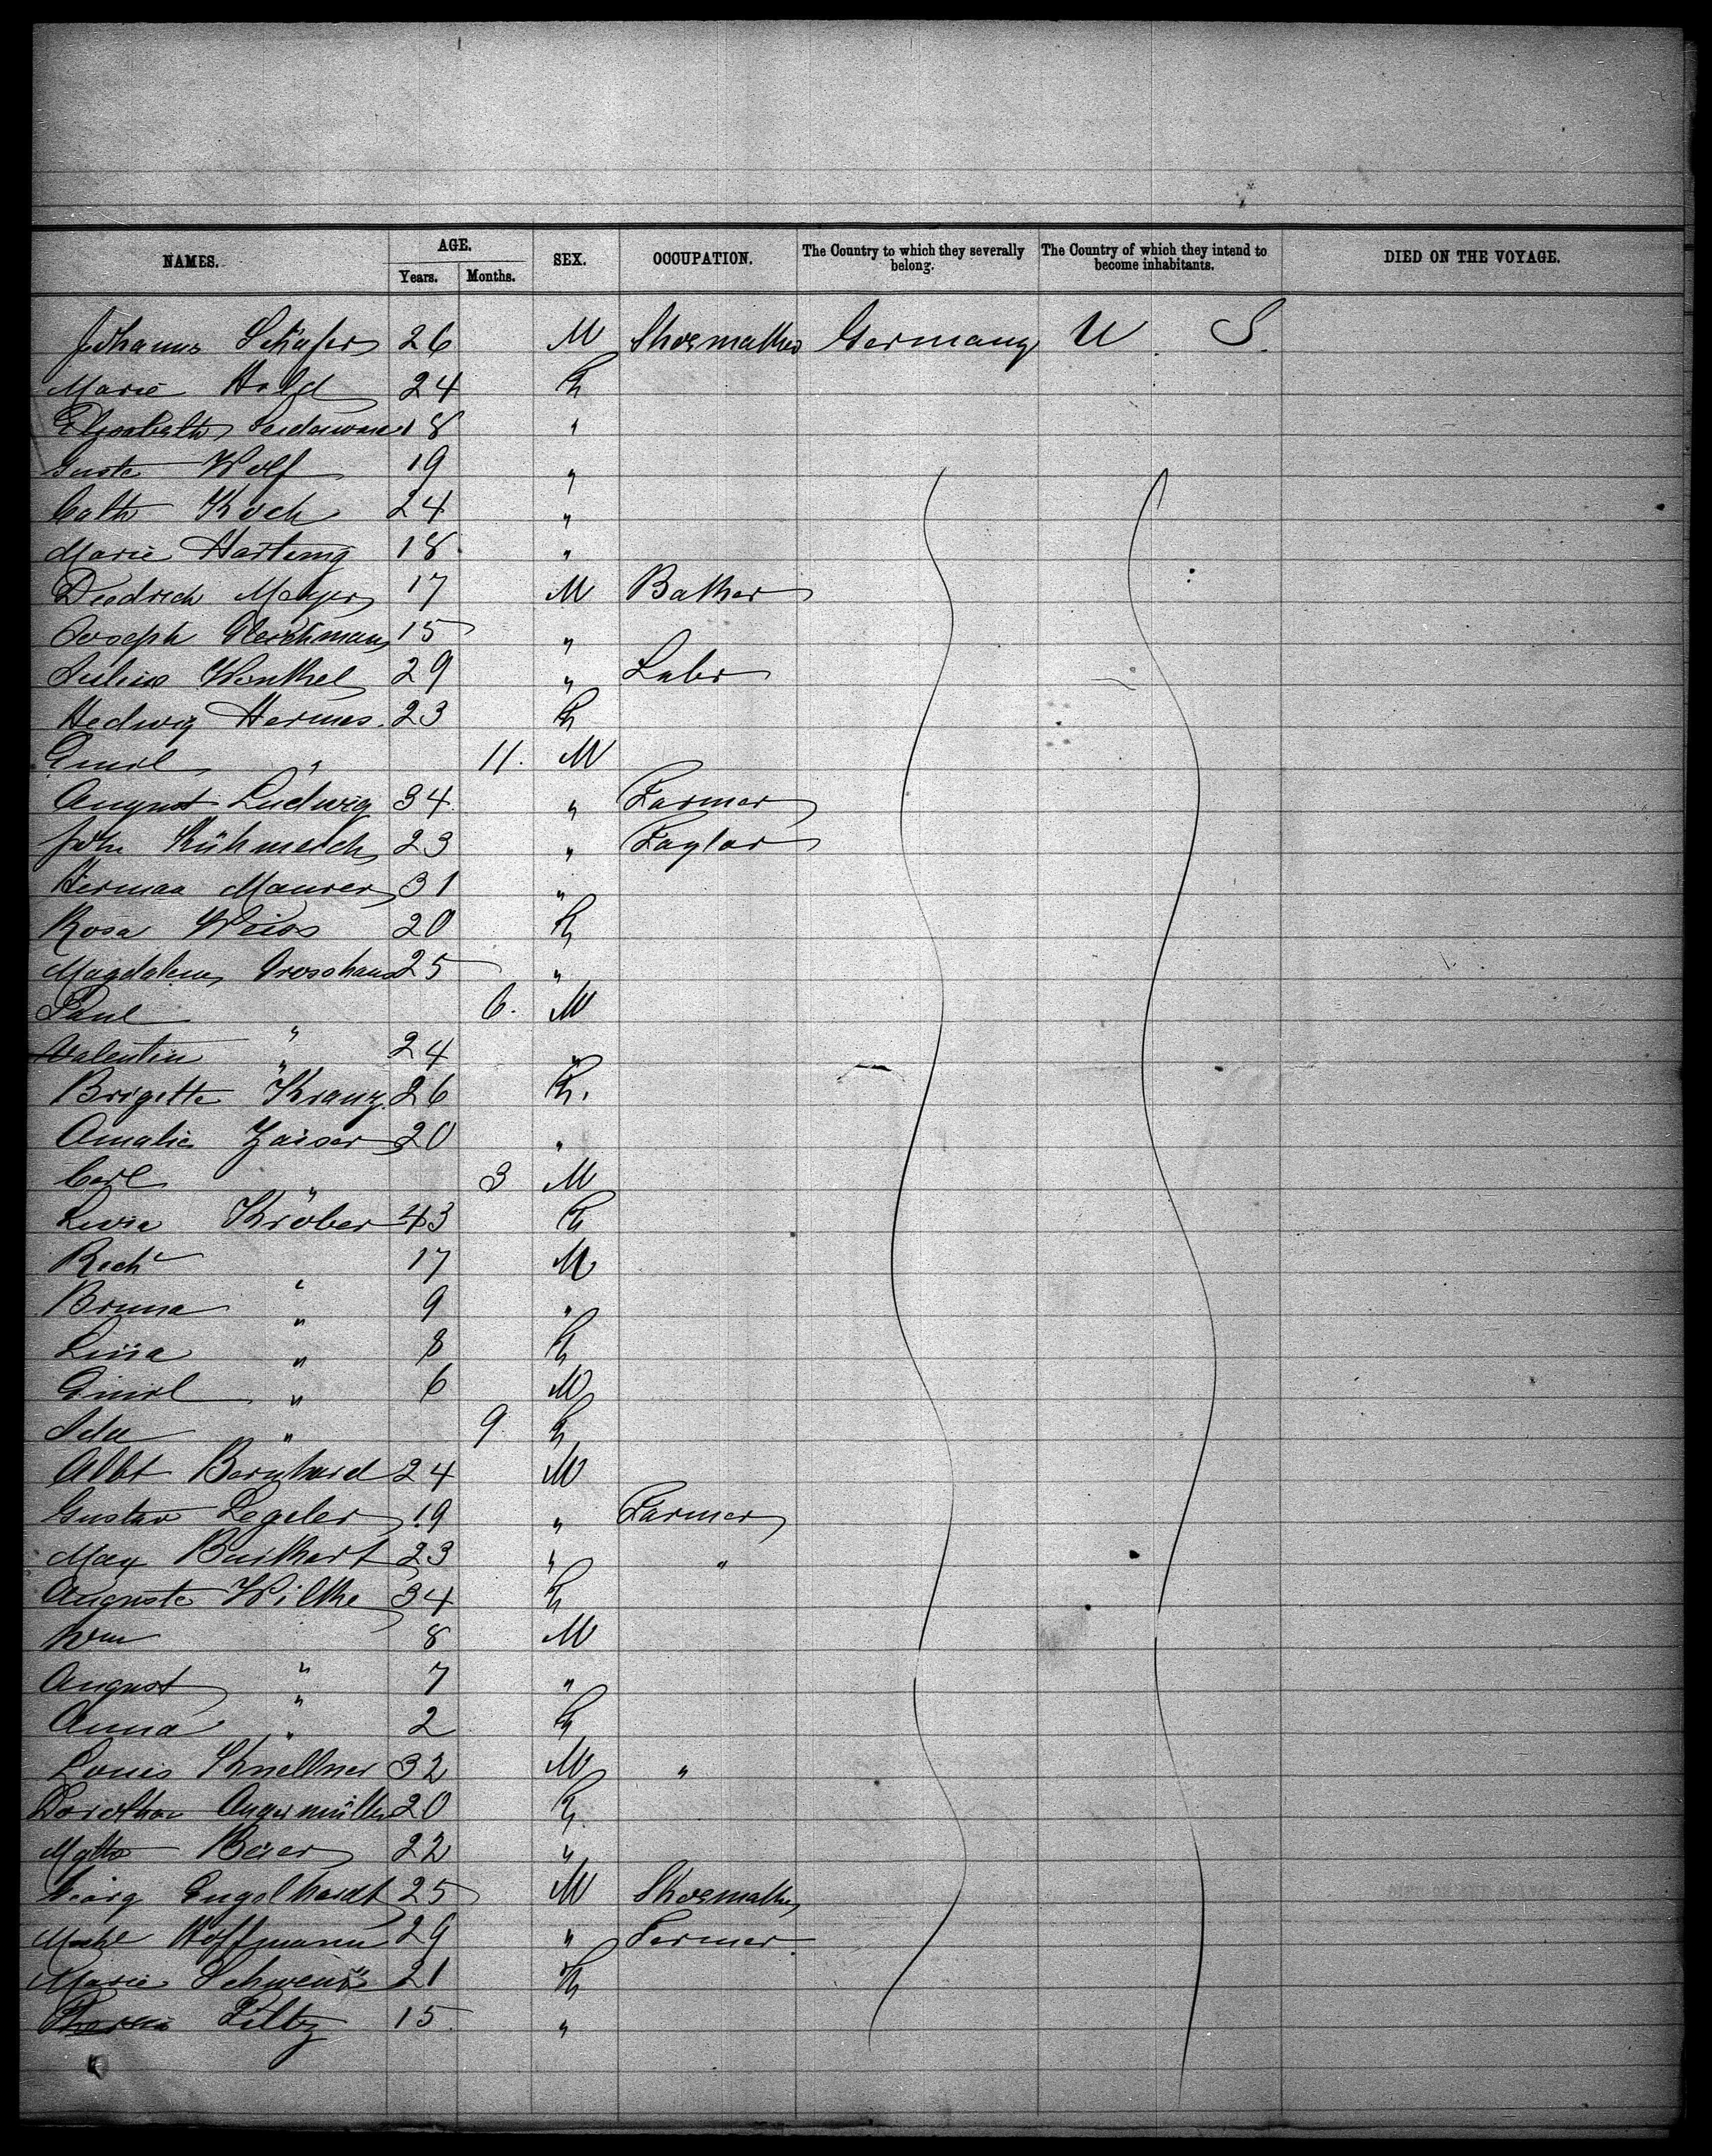 NAMES. AGE. Years. Months. SEX. OCCUPATION. The Country to which they severally belong. The Country of which they intend to become inhabitants. DIED ON THE VOYAGE.
Johannes Schäfer 26 M Shoemaker Germany U. S.
Marie Held 24 F
Elisabeth 18 "
Guste Wolf 19 "
Cath Koch 24 "
Marie Hartung 18 "
Diedrich Meyer 17 M Baker
Joseph 15 "
Julius Wenkel 29 " Labr
Hedwig Hermes 23 F
Emil " 11. M
August Ludwig 34 " Farmer
John 23 " Taylor
Herman Maurer 31 "
Rosa Weiss 20 F
Magdalena Grosshans 25 "
Paul " 6. M
Valentin " 24 "
Brigette Kranz 26 F.
Amalie Zaiser 20 "
Carl " 3 M
Kröber 43 F
Richd " 17 M
Bruno " 9 "
Lina " 8 F
Emil " 6 M
Ida " 9 F
Albt Bernhard 24 M
Gustav Legeler 19 " Farmer
Max 23 " "
Auguste Wilke 34 F
Wm " 8 M
August " 7 "
Anna " 2 F
Louis Knellner 32 M "
Dorothea Angermüller 20 F
Beier 22 "
Georg Engelhardt 25 M Shoemaker
Hoffmann 29 " Farmer
Marie 21 F
15 "